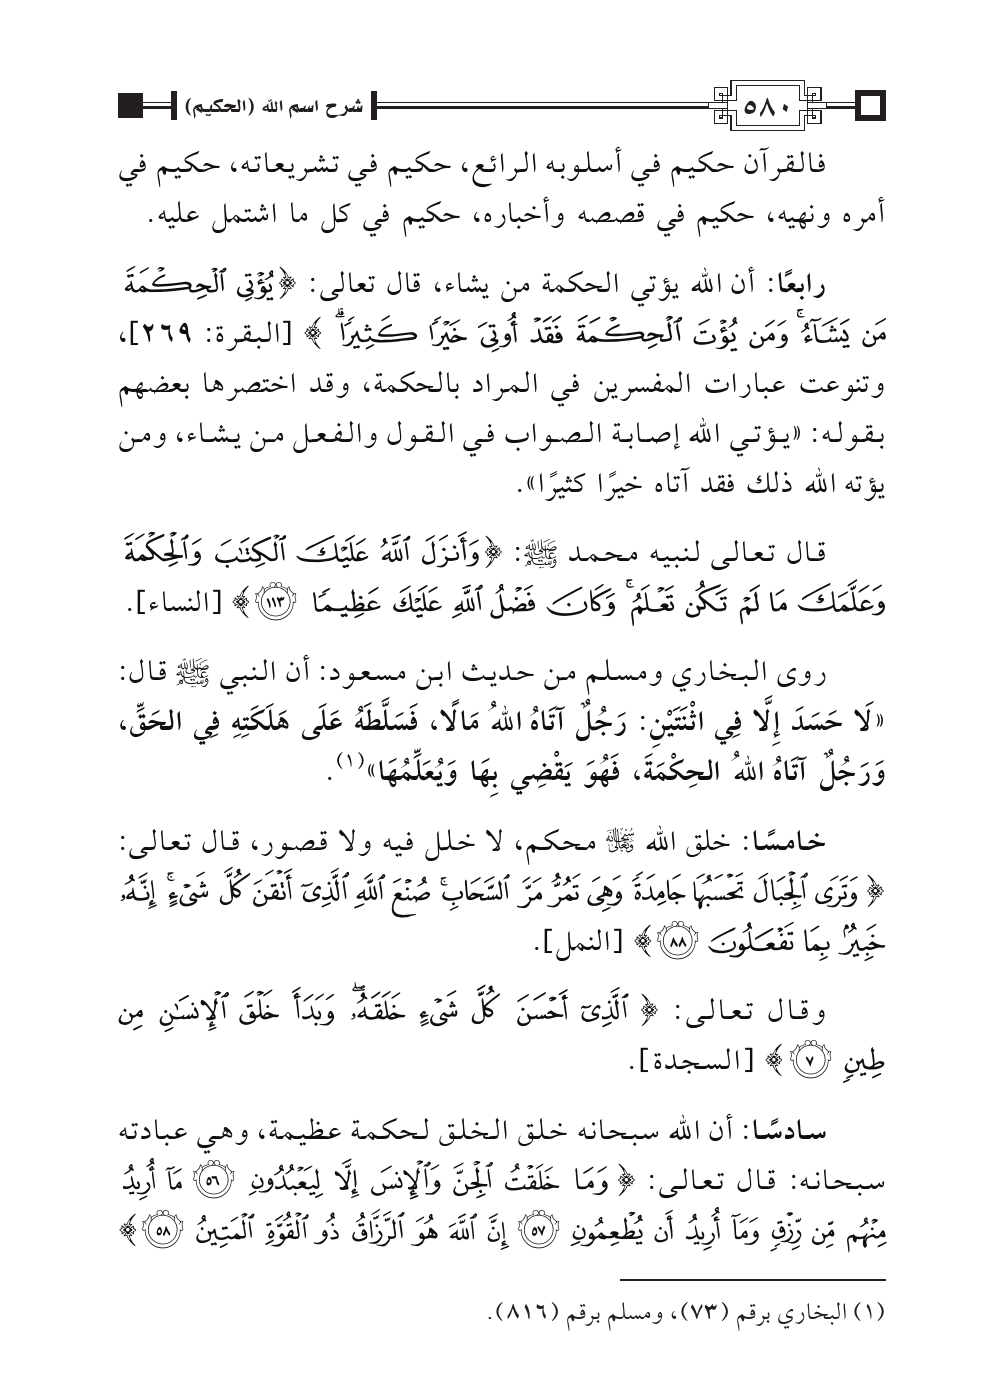 ٥٨٠
شرح اسم الله (الحكيم)
فالقرآن حكيم في أسلوبه الرائع، حكيم في تشريعاته، حكيم في
أمره ونهيه، حكيم في قصصه وأخباره، حكيم في كل ما اشتمل عليه.
رابعًا: أن الله يؤتي الحكمة من يشاء، قال تعالى: ﴿يُؤْتِي ٱلْحِكْمَةَ
مَن يَشَآءُ ۚ وَمَن يُؤْتَ ٱلْحِكْمَةَ فَقَدْ أُوتِيَ خَيْرًا كَثِيرًا ۗ﴾ [البقرة: ٢٦٩]،
وتنوعت عبارات المفسرين في المراد بالحكمة، وقد اختصرها بعضهم
بقوله: «يؤتي الله إصابة الصواب في القول والفعل من يشاء، ومن
يؤته الله ذلك فقد آتاه خيرًا كثيرًا».
قال تعالى لنبيه محمد ﷺ: ﴿وَأَنزَلَ ٱللَّهُ عَلَيْكَ ٱلْكِتَٰبَ وَٱلْحِكْمَةَ
وَعَلَّمَكَ مَا لَمْ تَكُن تَعْلَمُ ۚ وَكَانَ فَضْلُ ٱللَّهِ عَلَيْكَ عَظِيمًا ١١٣﴾ [النساء].
روى البخاري ومسلم من حديث ابن مسعود: أن النبي ﷺ قال:
«لَا حَسَدَ إِلَّا فِي اثْنَتَيْنِ: رَجُلٌ آتَاهُ اللهُ مَالًا، فَسَلَّطَهُ عَلَى هَلَكَتِهِ فِي الحَقِّ،
وَرَجُلٌ آتَاهُ اللهُ الحِكْمَةَ، فَهُوَ يَقْضِي بِهَا وَيُعَلِّمُهَا»(١).
خامسًا: خلق الله سبحانه وتعالى محكم، لا خلل فيه ولا قصور، قال تعالى:
﴿وَتَرَى ٱلْجِبَالَ تَحْسَبُهَا جَامِدَةً وَهِيَ تَمُرُّ مَرَّ ٱلسَّحَابِ ۚ صُنْعَ ٱللَّهِ ٱلَّذِىٓ أَتْقَنَ كُلَّ شَىْءٍ ۚ إِنَّهُۥ
خَبِيرٌۢ بِمَا تَفْعَلُونَ ٨٨﴾ [النمل].
وقال تعالى: ﴿ٱلَّذِىٓ أَحْسَنَ كُلَّ شَىْءٍ خَلَقَهُۥ ۖ وَبَدَأَ خَلْقَ ٱلْإِنسَٰنِ مِن
طِينٍ ٧﴾ [السجدة].
سادسًا: أن الله سبحانه خلق الخلق لحكمة عظيمة، وهي عبادته
سبحانه: قال تعالى: ﴿وَمَا خَلَقْتُ ٱلْجِنَّ وَٱلْإِنسَ إِلَّا لِيَعْبُدُونِ ٥٦ مَآ أُرِيدُ
مِنْهُم مِّن رِّزْقٍ وَمَآ أُرِيدُ أَن يُطْعِمُونِ ٥٧ إِنَّ ٱللَّهَ هُوَ ٱلرَّزَّاقُ ذُو ٱلْقُوَّةِ ٱلْمَتِينُ ٥٨﴾
(١) البخاري برقم (٧٣)، ومسلم برقم (٨١٦).